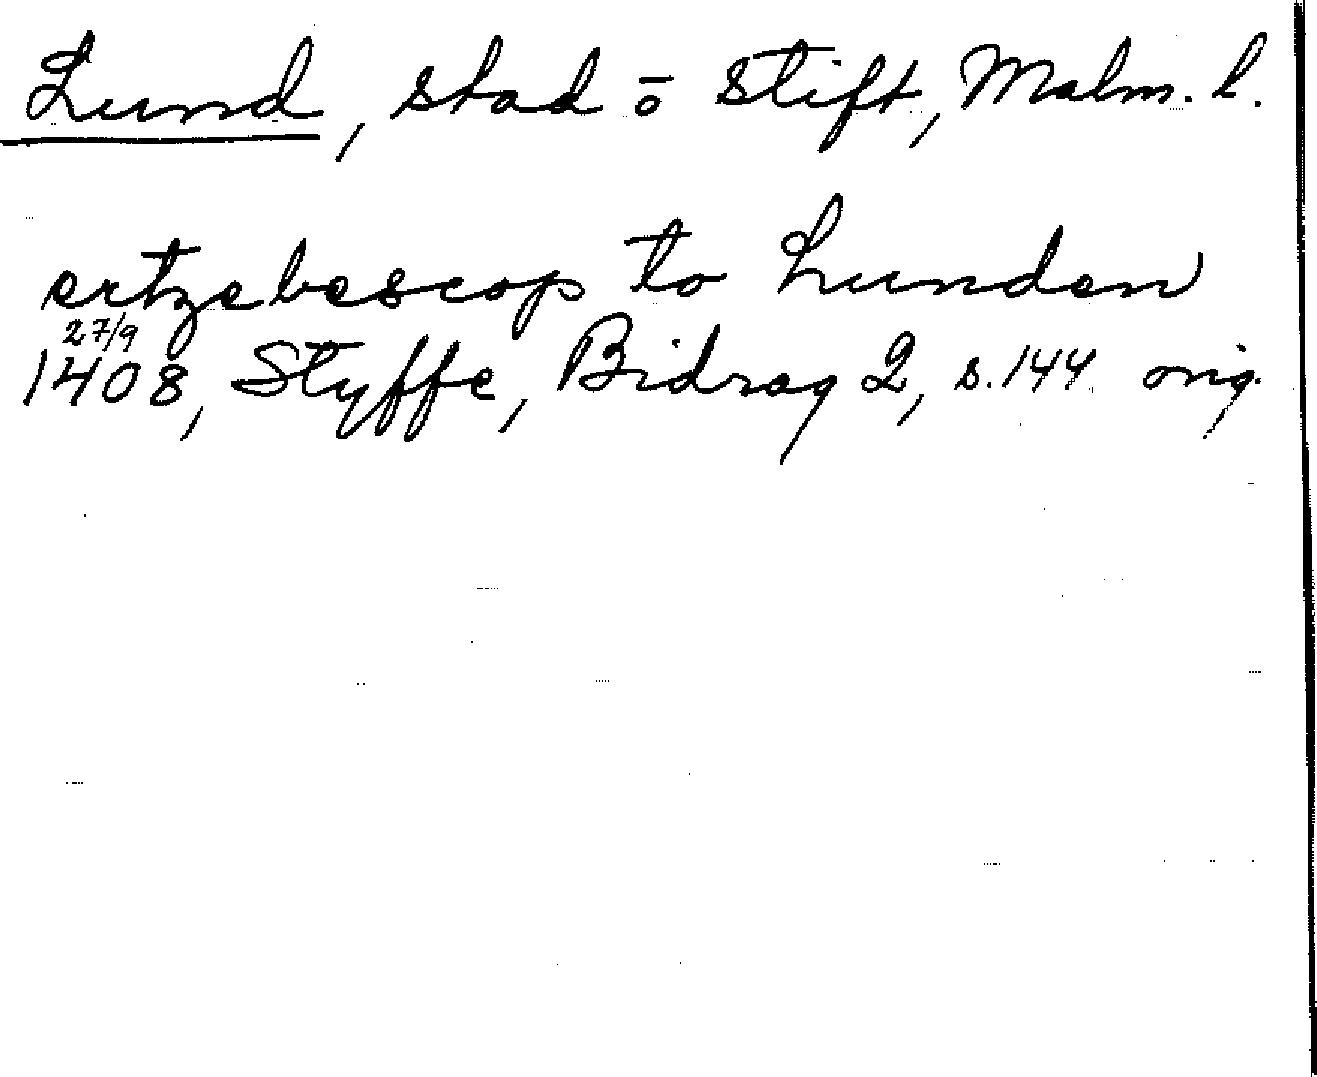 Lund, stad ō stift, Malm. l.
ertzebescop to Lunden
27/9
1408, Styffe, Bidrag 2, s. 144 orig.